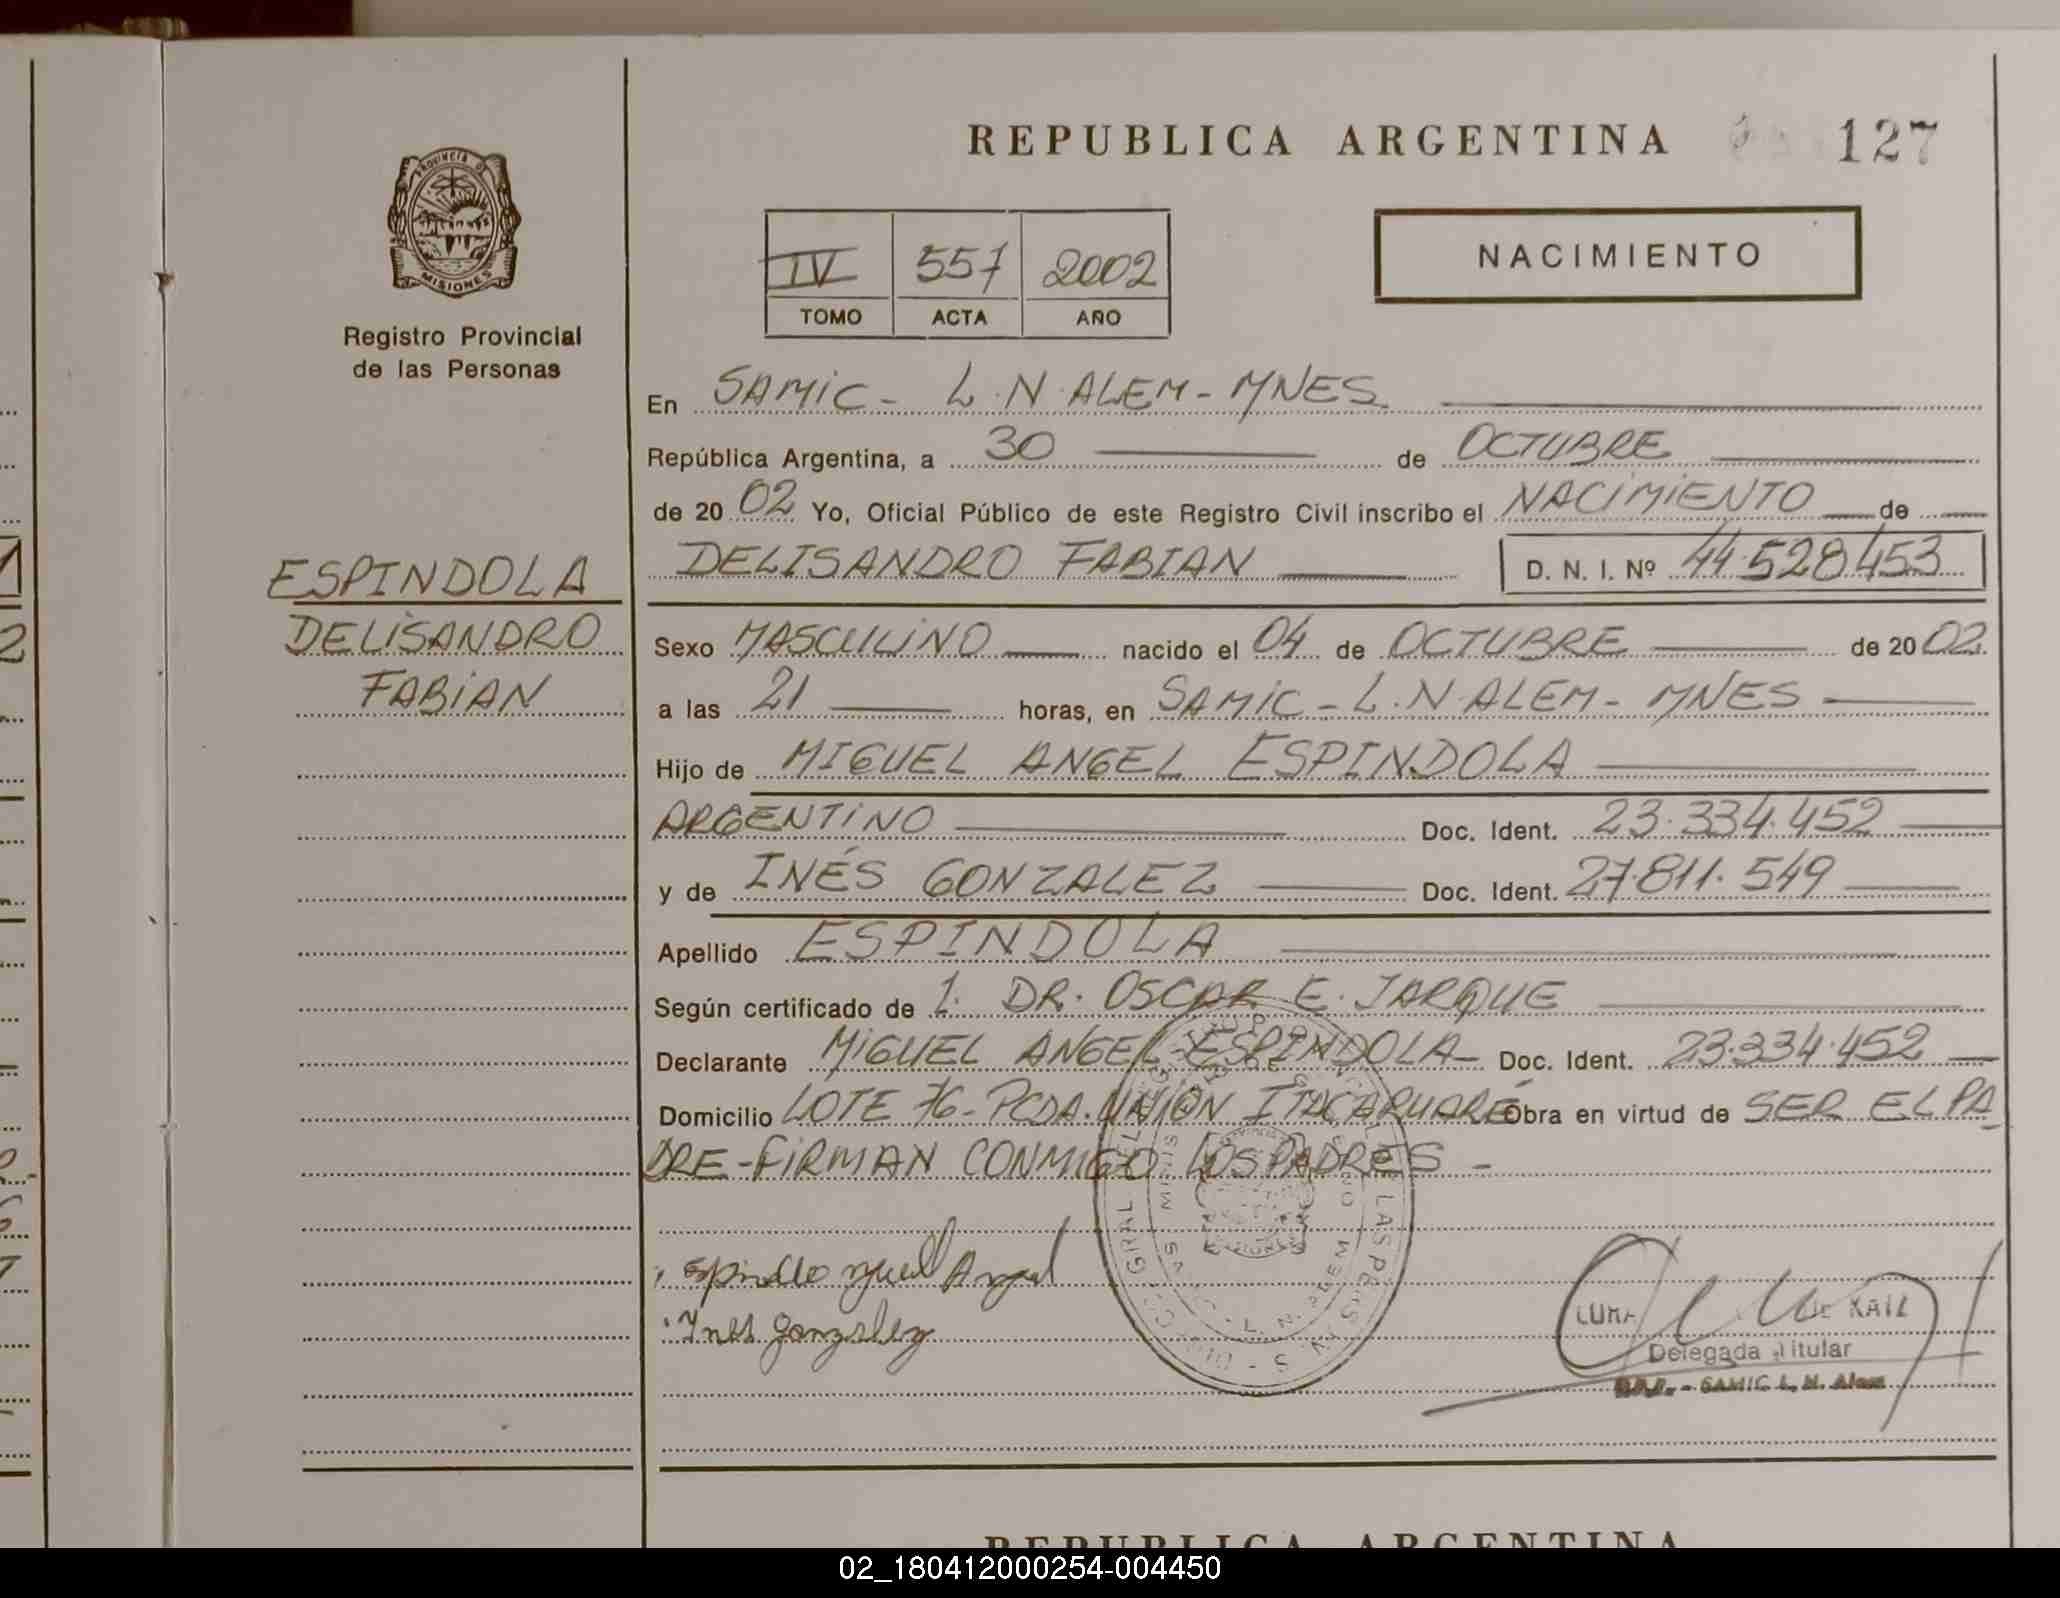 REPUBLICA ARGENTINA
127
PROVINCIA DE
MISIONES
Registro Provincial
de las Personas
IV 557 2002
TOMO ACTA AÑO
NACIMIENTO
En SAMIC - L.N. ALEM - MNES
República Argentina, a 30 de OCTUBRE
de 2002 Yo, Oficial Público de este Registro Civil inscribo el NACIMIENTO de
DELISANDRO FABIAN D. N. I. Nº 44.528453
ESPINDOLA
DELISANDRO
FABIAN
Sexo MASCULINO nacido el 04 de OCTUBRE de 2002
a las 21 horas, en SAMIC - L.N ALEM - MNES
Hijo de MIGUEL ANGEL ESPINDOLA
ARGENTINO Doc. Ident. 23.334.452
y de INÉS GONZALEZ Doc. Ident. 27.811.549
Apellido ESPINDOLA
Según certificado de 1. DR. OSCAR E. JARQUE
Declarante MIGUEL ANGEL ESPINDOLA - Doc. Ident. 23.334.452
Domicilio LOTE 76 - PCDA. UNIÓN ITACARUARÉ Obra en virtud de SER EL PA
DRE - FIRMAN CONMIGO LOS PADRES -
Angel
Ines Gonzalez
DE KAIL
Delegada Titular
SAMIC L. N. Alem
REPUBLICA ARGENTINA
02_180412000254-004450